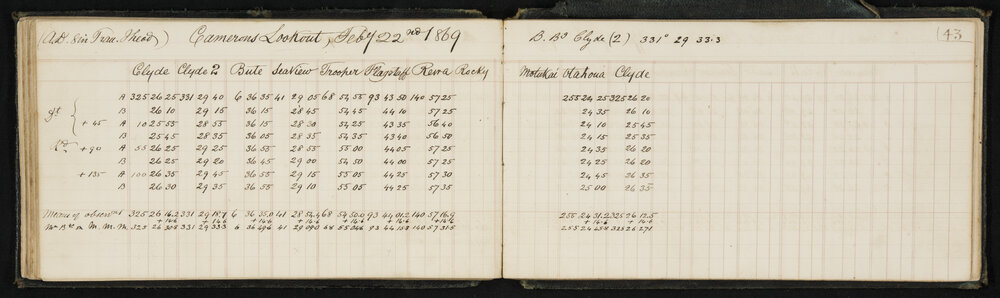 Camerons Lookout, Feby 22nd 1869
B. Bs Clyde (2) 331° 29 33.3
43
Clyde Clyde 2 Bute Seaview Trooper Flagstaff Rewa Rocky Motukai Otahoua Clyde
A 325 26 25 331 29 40 6 36 35 41 29 05 68 54 55 93 43 50 140 57 25 255 24 25 325 26 20
B 26 10 29 15 36 15 28 45 54 45 44 10 57 25 24 35 26 10
+ 45 A 10 25 55 28 55 36 15 28 30 54 25 43 35 56 40 24 10 25 45
B 25 45 28 35 36 05 28 35 54 35 43 40 56 50 24 15 25 35
+ 90 A 55 26 25 29 25 36 55 28 55 55 00 44 05 57 25 24 35 26 20
B 26 25 29 20 36 45 29 00 54 50 44 00 57 25 24 25 26 20
+ 135 A 100 26 35 29 45 36 55 29 15 55 05 44 25 57 30 24 45 26 35
B 26 30 29 35 36 55 29 10 55 05 44 25 57 35 25 00 26 35
Means of observns 325 26 16.2 331 29 18.7 6 36 35.0 41 28 54.4 68 54 50.0 93 44 01.2 140 57 16.9 255 24 31.2 325 26 12.5
+ 14.6 + 14.6 + 14.6 + 14.6 + 14.6 + 14.6 + 14.6 + 14.6
325 26 30.8 331 29 33.3 6 36 49.6 41 29 09.0 68 55 04.6 93 44 15.8 140 57 31.5 255 24 45.8 325 26 27.1